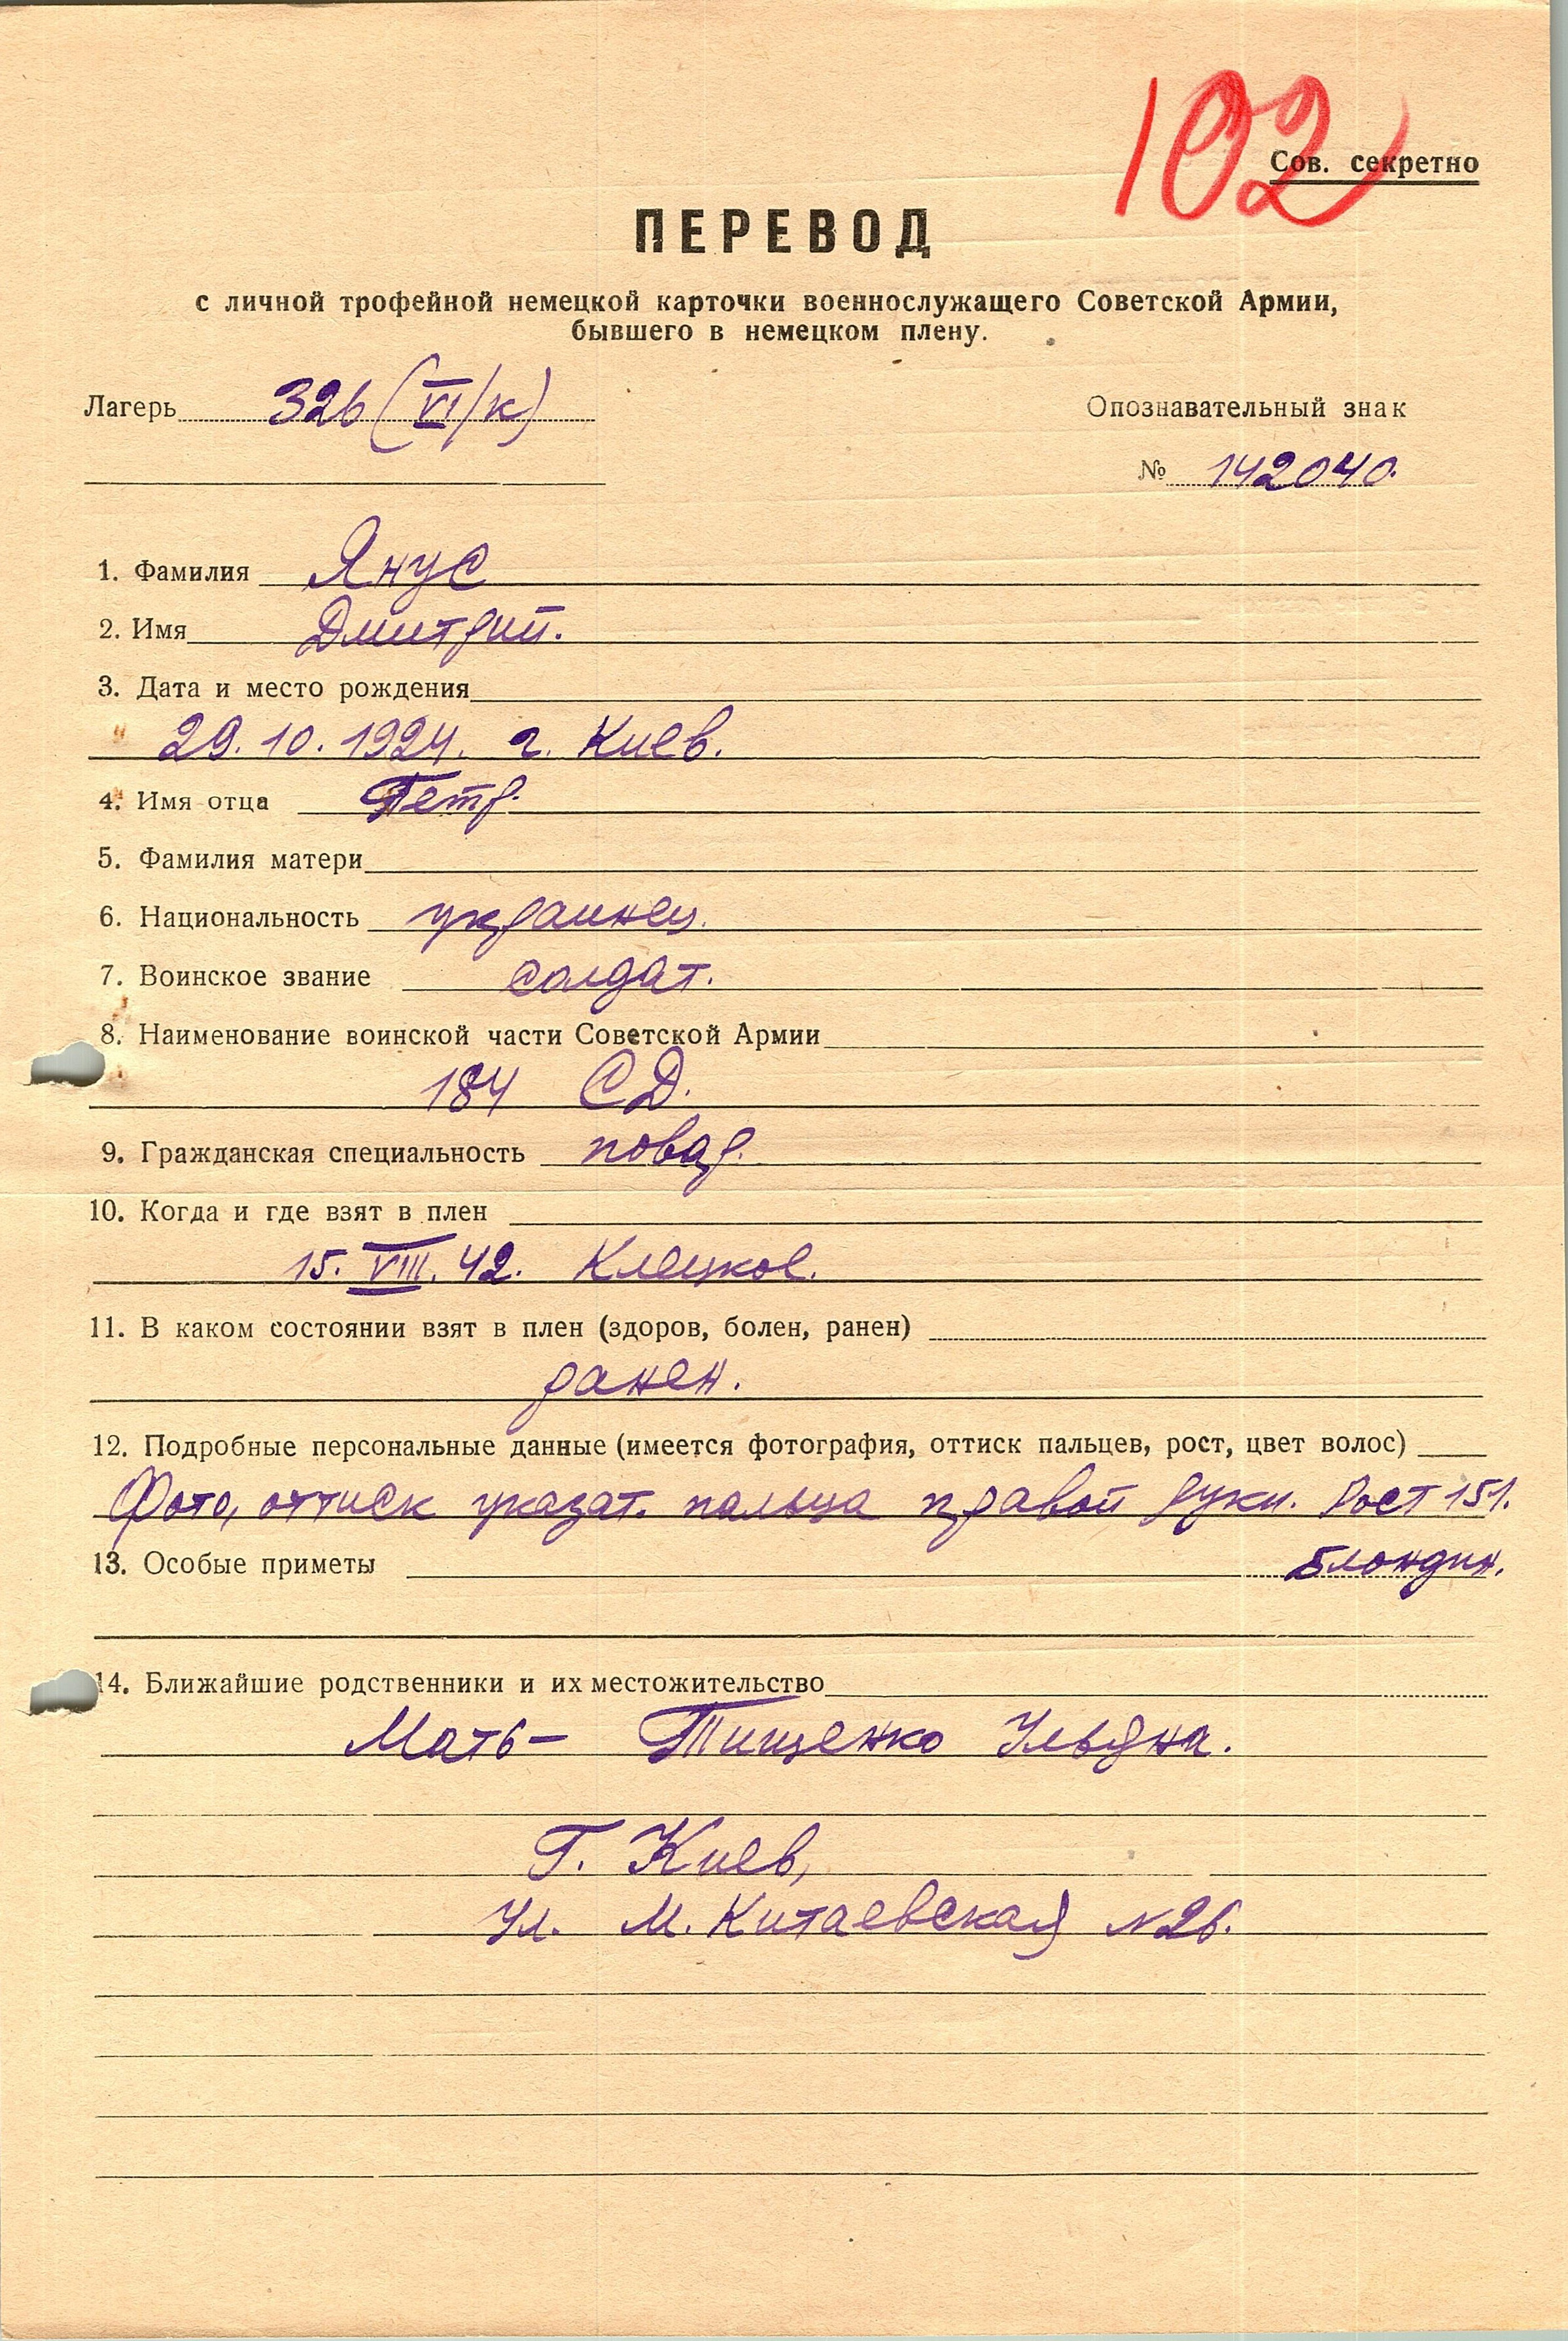 102
Сов. секретно
ПЕРЕВОД
с личной трофейной немецкой карточки военнослужащего Советской Армии,
бывшего в немецком плену.
Лагерь 326 (VI/к) Опознавательный знак
№ 142040.
1. Фамилия Янус
2. Имя Дмитрий.
3. Дата и место рождения
29.10.1924. г. Киев.
4. Имя отца Петр.
5. Фамилия матери
6. Национальность украинец.
7. Воинское звание солдат.
8. Наименование воинской части Советской Армии
184 СД.
9. Гражданская специальность повар.
10. Когда и где взят в плен
15. VIII. 42. Клецков.
11. В каком состоянии взят в плен (здоров, болен, ранен)
ранен.
12. Подробные персональные данные (имеется фотография, оттиск пальцев, рост, цвет волос)
Фото, оттиск указат. пальца правой руки. Рост 151.
13. Особые приметы Блондин.
14. Ближайшие родственники и их местожительство
Мать – Тищенко Ульяна.
Г. Киев,
Ул. М. Китаевская N 26.